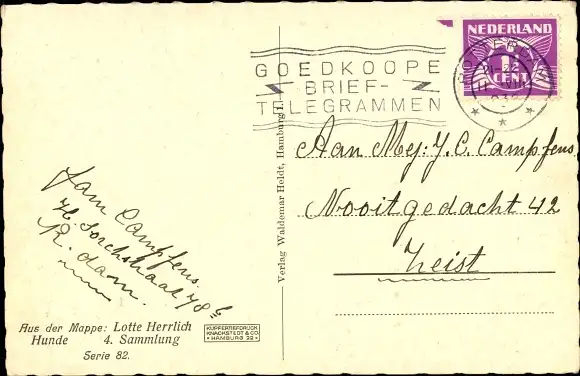 NEDERLAND
1½
CENT
ROTTERDAM
GOEDKOOPE
BRIEF-
TELEGRAMMEN
Aan Mej: J. C. Campfens
Nooitgedacht 42
Zeist
Verlag Waldemar Heldt, Hamburg
Campfens.
R. dam.
Aus der Mappe: Lotte Herrlich
Hunde 4. Sammlung
Serie 82.
KUPFERTIEFDRUCK
KNACKSTEDT & CO.
HAMBURG 22